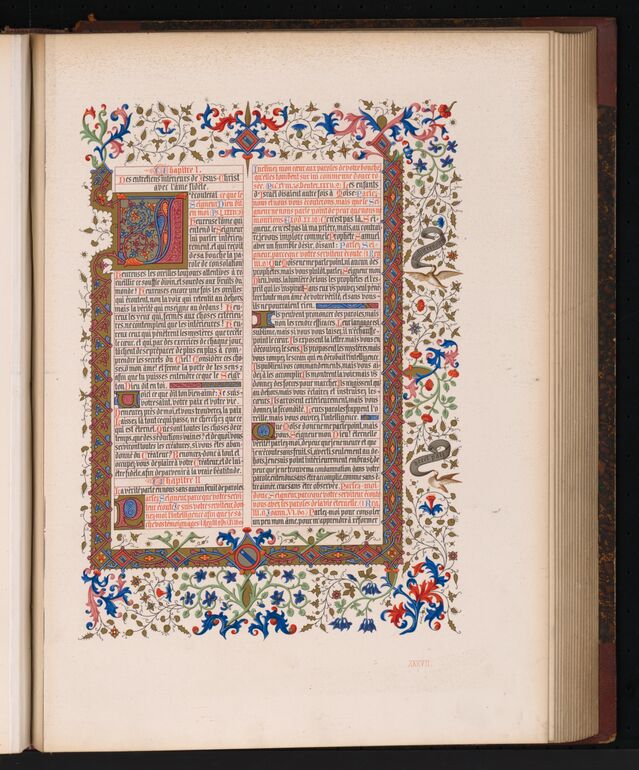 Chapitre I.
Des entretiens intérieurs de Jésus-Christ
avec l'âme fidèle.
J'écouterai ce que le
Seigneur Dieu dit
en moi
heureuse l'âme qui
entend le Seigneur
lui parler intérieu-
rement, et qui reçoit
de sa bouche la pa-
role de consolation
heureuses les oreilles toujours attentives à re-
cueillir ce souffle divin, et sourdes aux bruits du
monde! heureuses encore une fois les oreilles
qui écoutent, non la voix qui retentit au dehors
mais la vérité qui enseigne au dedans! heu-
reux les yeux qui, fermés aux choses extérieu-
res, ne contemplent que les intérieures! heu-
reux ceux qui pénètrent les mystères que recèle
le cœur, et qui, par des exercices de chaque jour,
tâchent de se préparer de plus en plus à com-
prendre les secrets du Ciel! Considère ces cho-
ses, ô mon âme! et ferme la porte de tes sens
afin que tu puisses entendre ce que le Seign
ton Dieu dit en toi.
Voici ce que dit ton bien-aimé: Je suis
votre salut, votre paix et votre vie.
Demeurez près de moi, et vous trouverez la paix
Laissez là tout ce qui passe, ne cherchez que ce
qui est éternel. Que sont toutes les choses du
temps, que des séductions vaines? et de quoi vous
serviront toutes les créatures, si vous êtes aban-
donné du Créateur? Renoncez donc à tout, et
occupez-vous de plaire à votre Créateur, et de lui
être fidèle, afin de parvenir à la vraie béatitude.
Chapitre II
La vérité parle en nous sans aucun bruit de paroles
Parlez, Seigneur, parce que votre servi-
teur écoute. Je suis votre serviteur: don-
nez-moi l'intelligence, afin que je sa-
che vos témoignages
Inclinez mon cœur aux paroles de votre bouche
qu'elles tombent sur lui comme une douce ro-
sée. Les enfants
d'Israël disaient autrefois à Moïse: Parlez-
nous et nous vous écouterons, mais que le Sei-
gneur ne nous parle point, de peur que nous ne
mourions. Ce n'est pas là, Sei-
gneur, ce n'est pas là ma prière, mais au contrai-
re je vous implore comme le Prophète Samuel
avec un humble désir, disant: Parlez, Sei-
gneur, parce que votre serviteur écoute.
Que Moïse ne me parle point, ni aucun des
prophètes, mais vous plutôt, parlez, Seigneur mon
Dieu, vous, la lumière de tous les prophètes et l'es-
prit qui les inspirait. Sans eux, vous pouvez seul péné-
trer toute mon âme de votre vérité, et sans vous
ils ne pourraient rien.
Ils peuvent prononcer des paroles, mais
non les rendre efficaces. Leur langage est
sublime, mais si vous vous taisez, il n'échauffe
point le cœur. Ils exposent la lettre, mais vous en
découvrez le sens. Ils proposent les mystères, mais
vous rompez le sceau qui en dérobait l'intelligence.
Ils publient vos commandements, mais vous ai-
dez à les accomplir. Ils montrent la voie, mais vous
donnez des forces pour marcher. Ils n'agissent qu'
au dehors, mais vous éclairez et instruisez les
cœurs. Ils arrosent extérieurement, mais vous
donnez la fécondité. Leurs paroles frappent l'o-
reille, mais vous ouvrez l'intelligence.
Que Moïse donc ne me parle point, mais
vous, Seigneur mon Dieu! éternelle
vérité! parlez-moi, de peur que je ne meure et que
je n'écoute sans fruit, si, averti seulement au de-
hors, je ne suis point intérieurement embrasé, de
peur que je ne trouve ma condamnation dans votre
parole, entendue sans être accomplie, connue sans ê-
tre aimée, crue sans être observée. Parlez-moi
donc, Seigneur, parce que votre serviteur écoute
vous avez les paroles de la vie éternelle.
Parlez-moi pour consoler
un peu mon âme, pour m'apprendre à réformer
XXXVII.